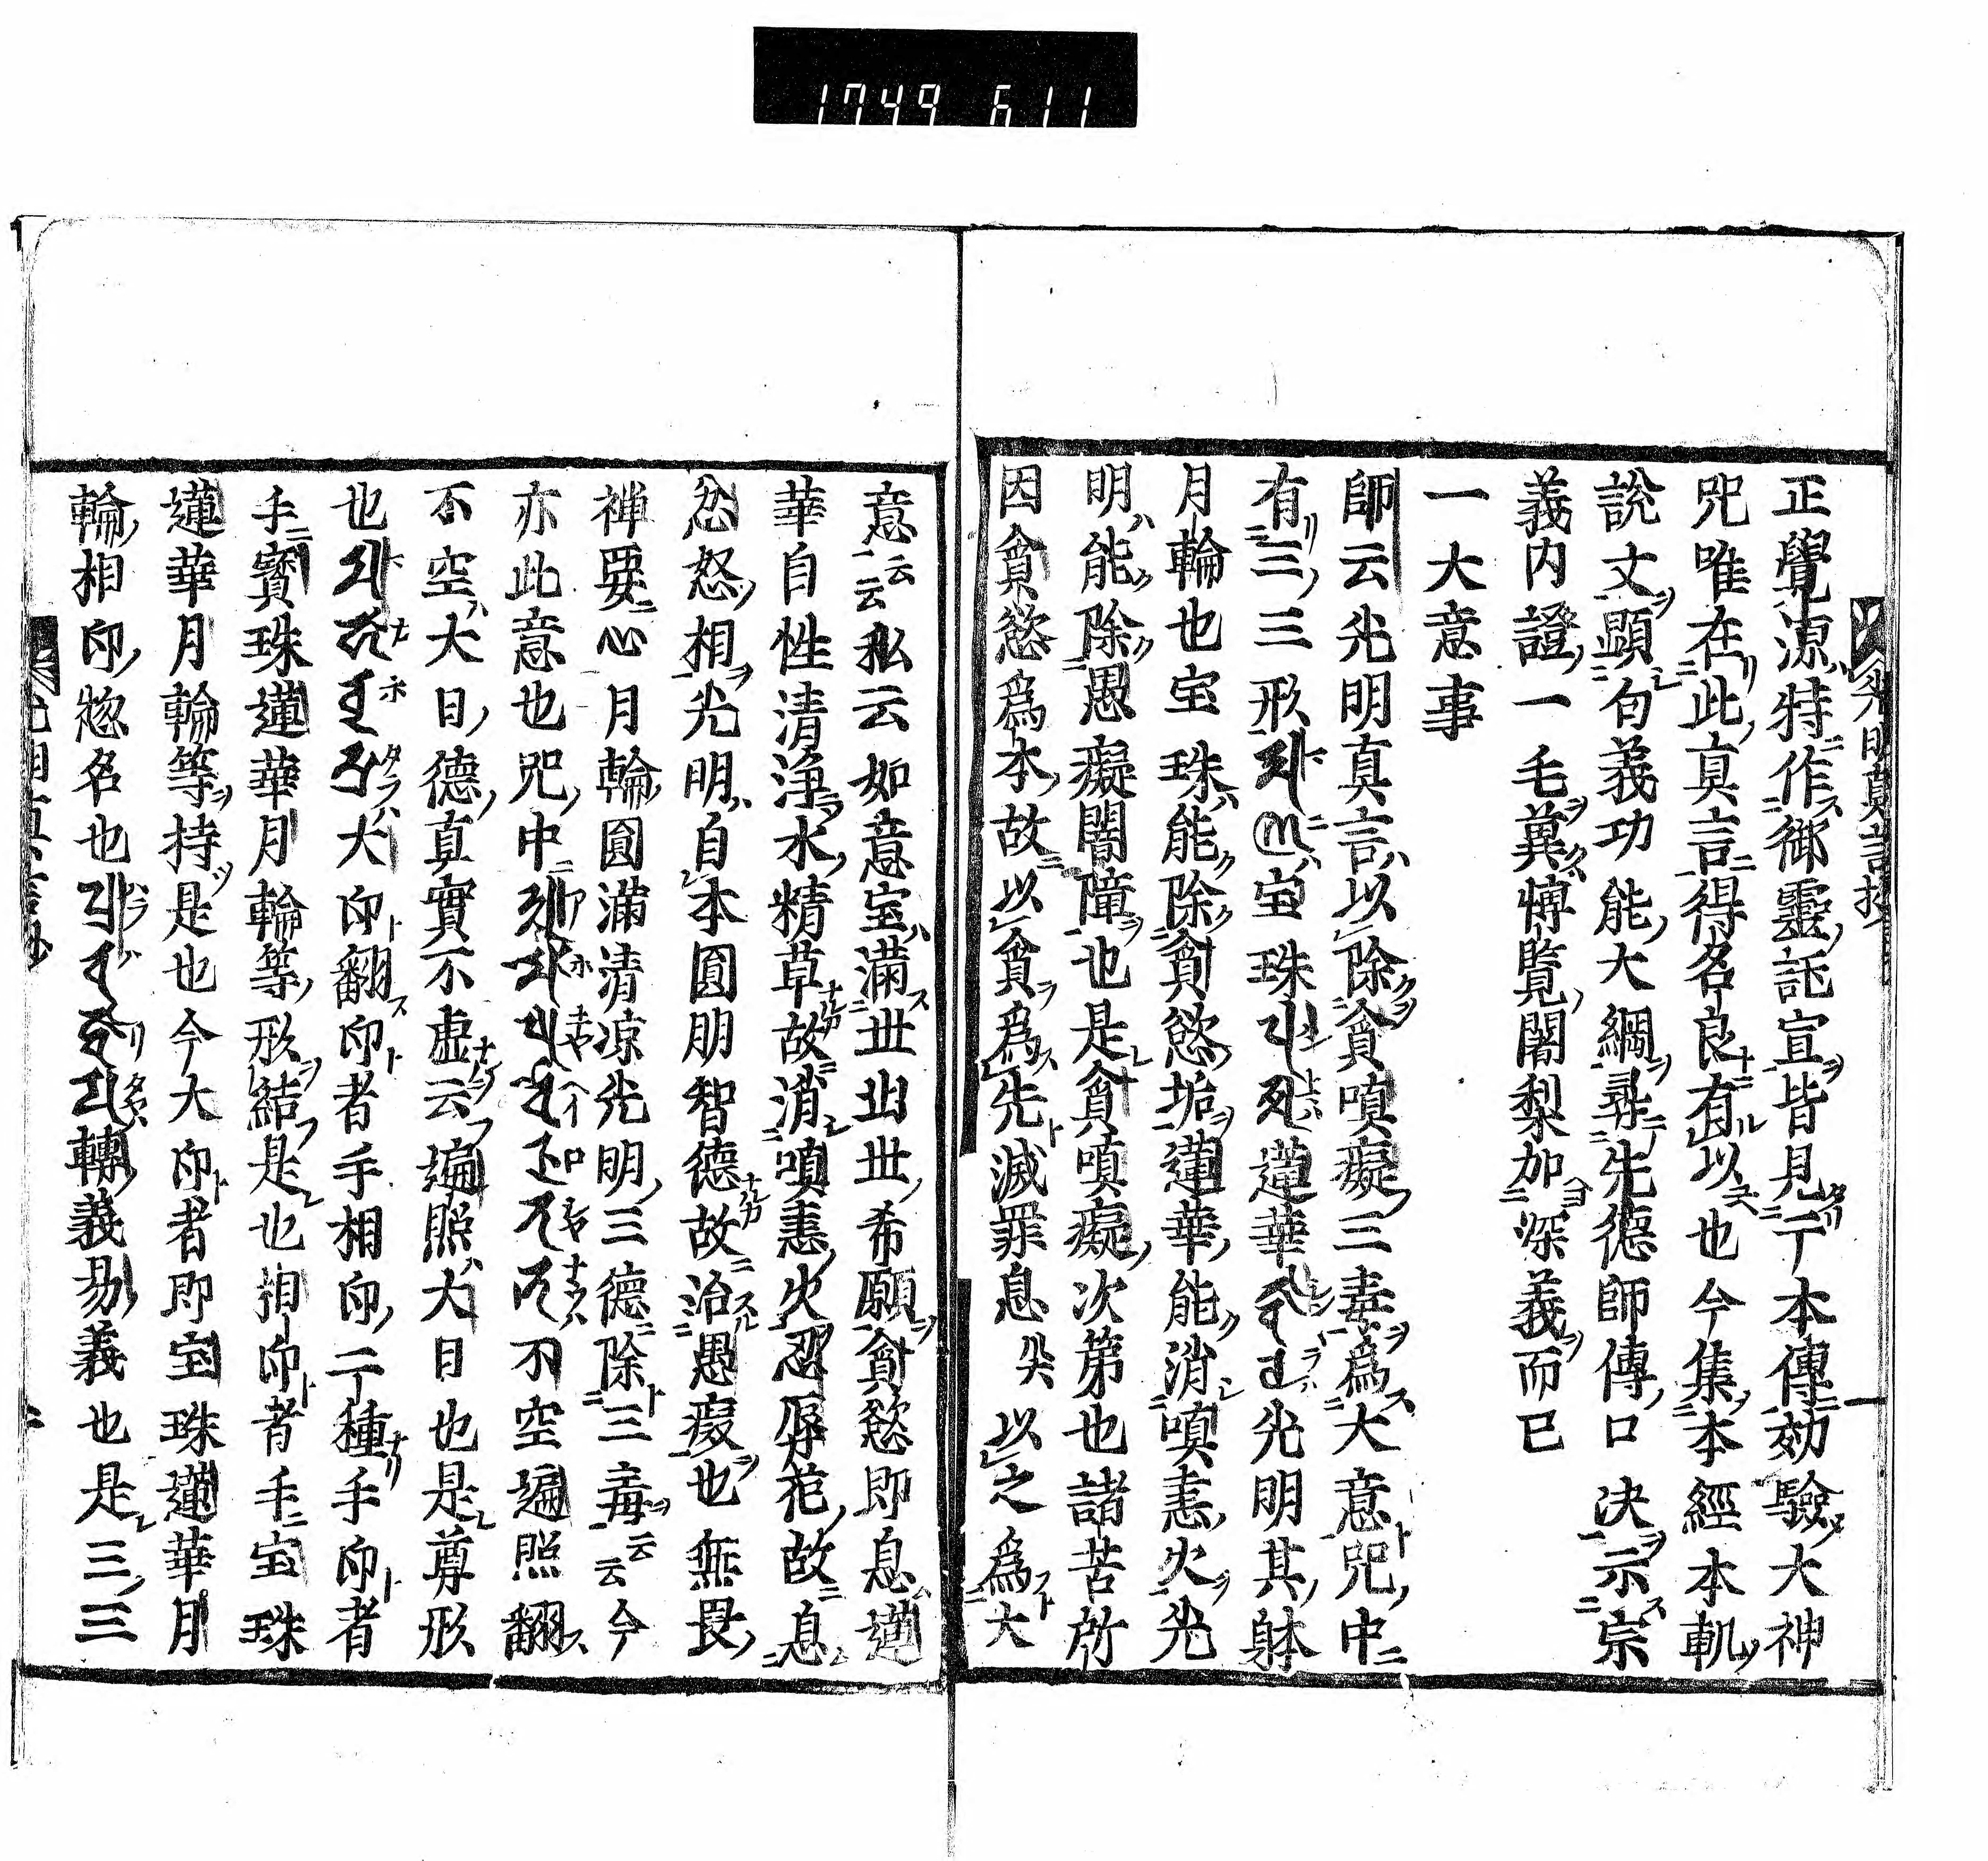 1749 611
光明真言抄
正覺源特作御靈託宣皆見于本傳効驗大神
呪唯在此真言得名良有以也今集本經本軌
說文顯句義功能大綱尋先德師傳口決示宗
義内證一毛冀博覽闍梨加深義而已
一大意事
師云光明真言以除貪嗔癡三毒為大意呪中
有三三形 宝珠 蓮華 光明其躰
月輪也宝珠能除貪慾垢蓮華能消嗔恚火光
明能除愚癡闇障也是貪嗔癡次第也諸苦所
因貪慾為本故以貪為先滅罪息災以之為大
意云云私云如意宝滿世出世希願貪慾即息蓮
華自性清淨水精草故消嗔恚火忍辱花故息
忿怒相光明自本圓明智德故治愚癡也無畏
禅要心月輪圓滿清凉光明三德除三毒云云今
亦此意也呪中 不空遍照翻
不空大日德真實不虚云遍照大日也是尊形
也 大印翻印者手相印二種手印者
手寳珠蓮華月輪等形結是也相印者手宝珠
蓮華月輪等持是也今大印者即宝珠蓮華月
輪相印惣名也 轉義易義也是三三
光明真言抄